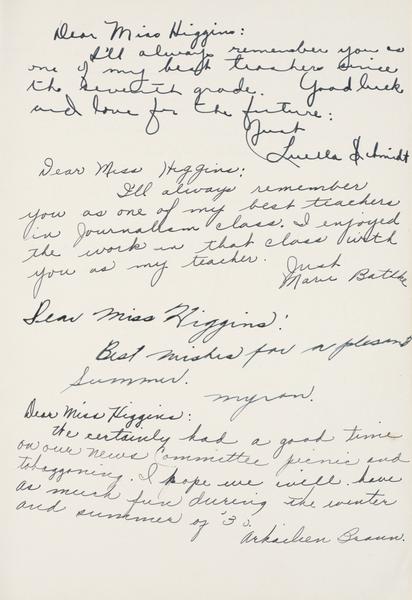 Dear Miss Higgins:
I'll always remember you as
one of my best teachers since
the seventh grade. Good luck
and love for the future.
Just
Luella Schmidt
Dear Miss Higgins:
I'll always remember
you as one of my best teachers
in Journalism class. I enjoyed
the work in that class with
you as my teacher.
Just
Marie
Dear Miss Higgins:
Best wishes for a pleasant
summer.
Myron.
Dear Miss Higgins:
We certainly had a good time
on our News Committee picnic and
tobaggoning. I hope we will have
as much fun during the winter
and summer of '3
Braun.